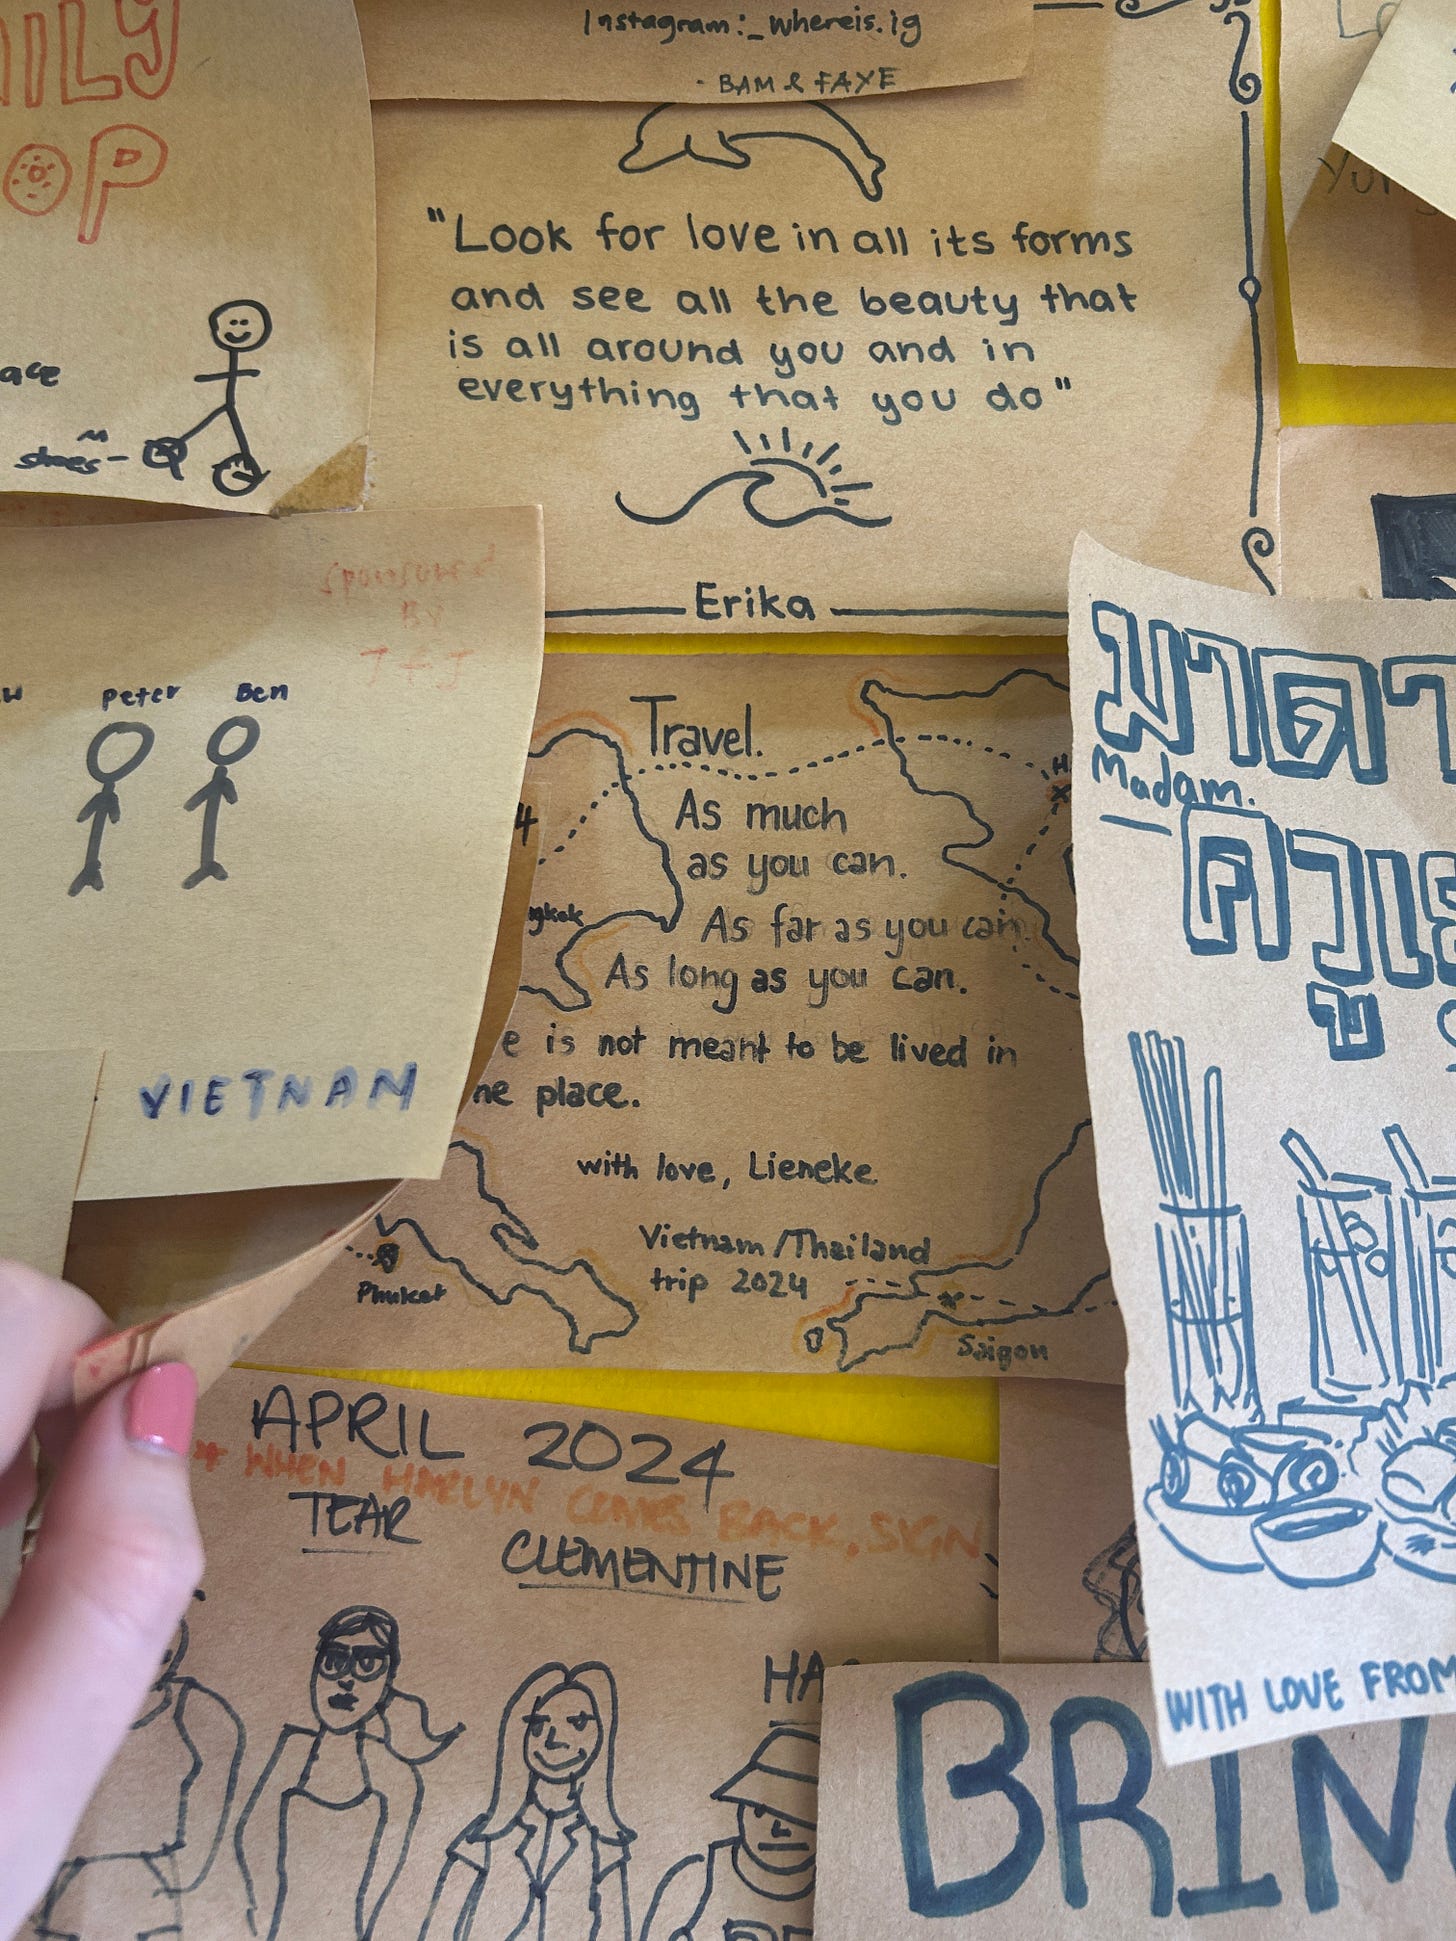 Instagram:_whereis.ig
- BAM & FAYE
"Look for love in all its forms
and see all the beauty that
is all around you and in
everything that you do"
Erika
ILY
OP
ace
shoes-
SPONSORED
BY
J + J
Peter Ben
VIETNAM
Travel.
As much
as you can.
As far as you can.
As long as you can.
e is not meant to be lived in
ne place.
with love, Lieneke
Vietnam/Thailand
trip 2024
gkok
Phuket
Saigon
มาดาม
Madam.
WITH LOVE FROM
APRIL 2024
* WHEN HAELYN COMES BACK, SIGN
TEAR
CLEMENTINE
HA
BRIN